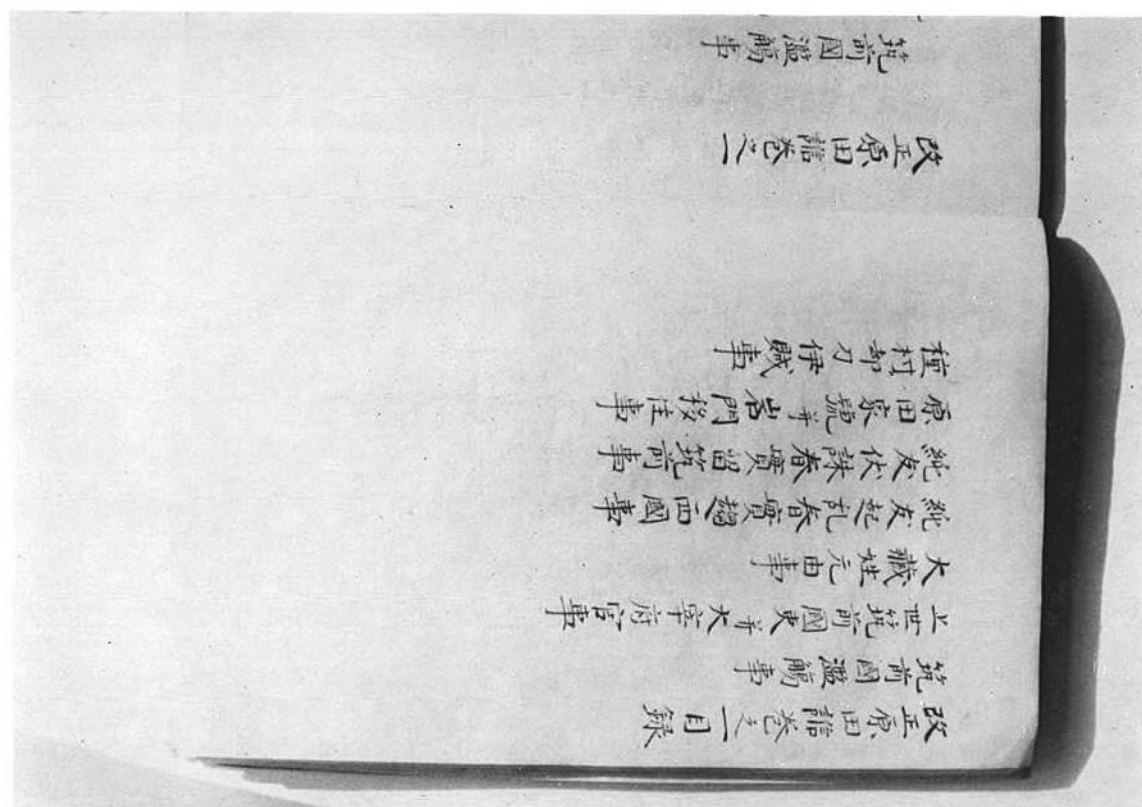 改正原田譜巻之一目録
筑前國濫觴事
上世筑前國吏并大宰府官事
大藏姓元由事
純友起乱春實趨西國事
純友伏誅春實留筑前事
原田家號并岩門移住事
種材却刀伊賊事
改正原田譜巻之一
筑前國濫觴事